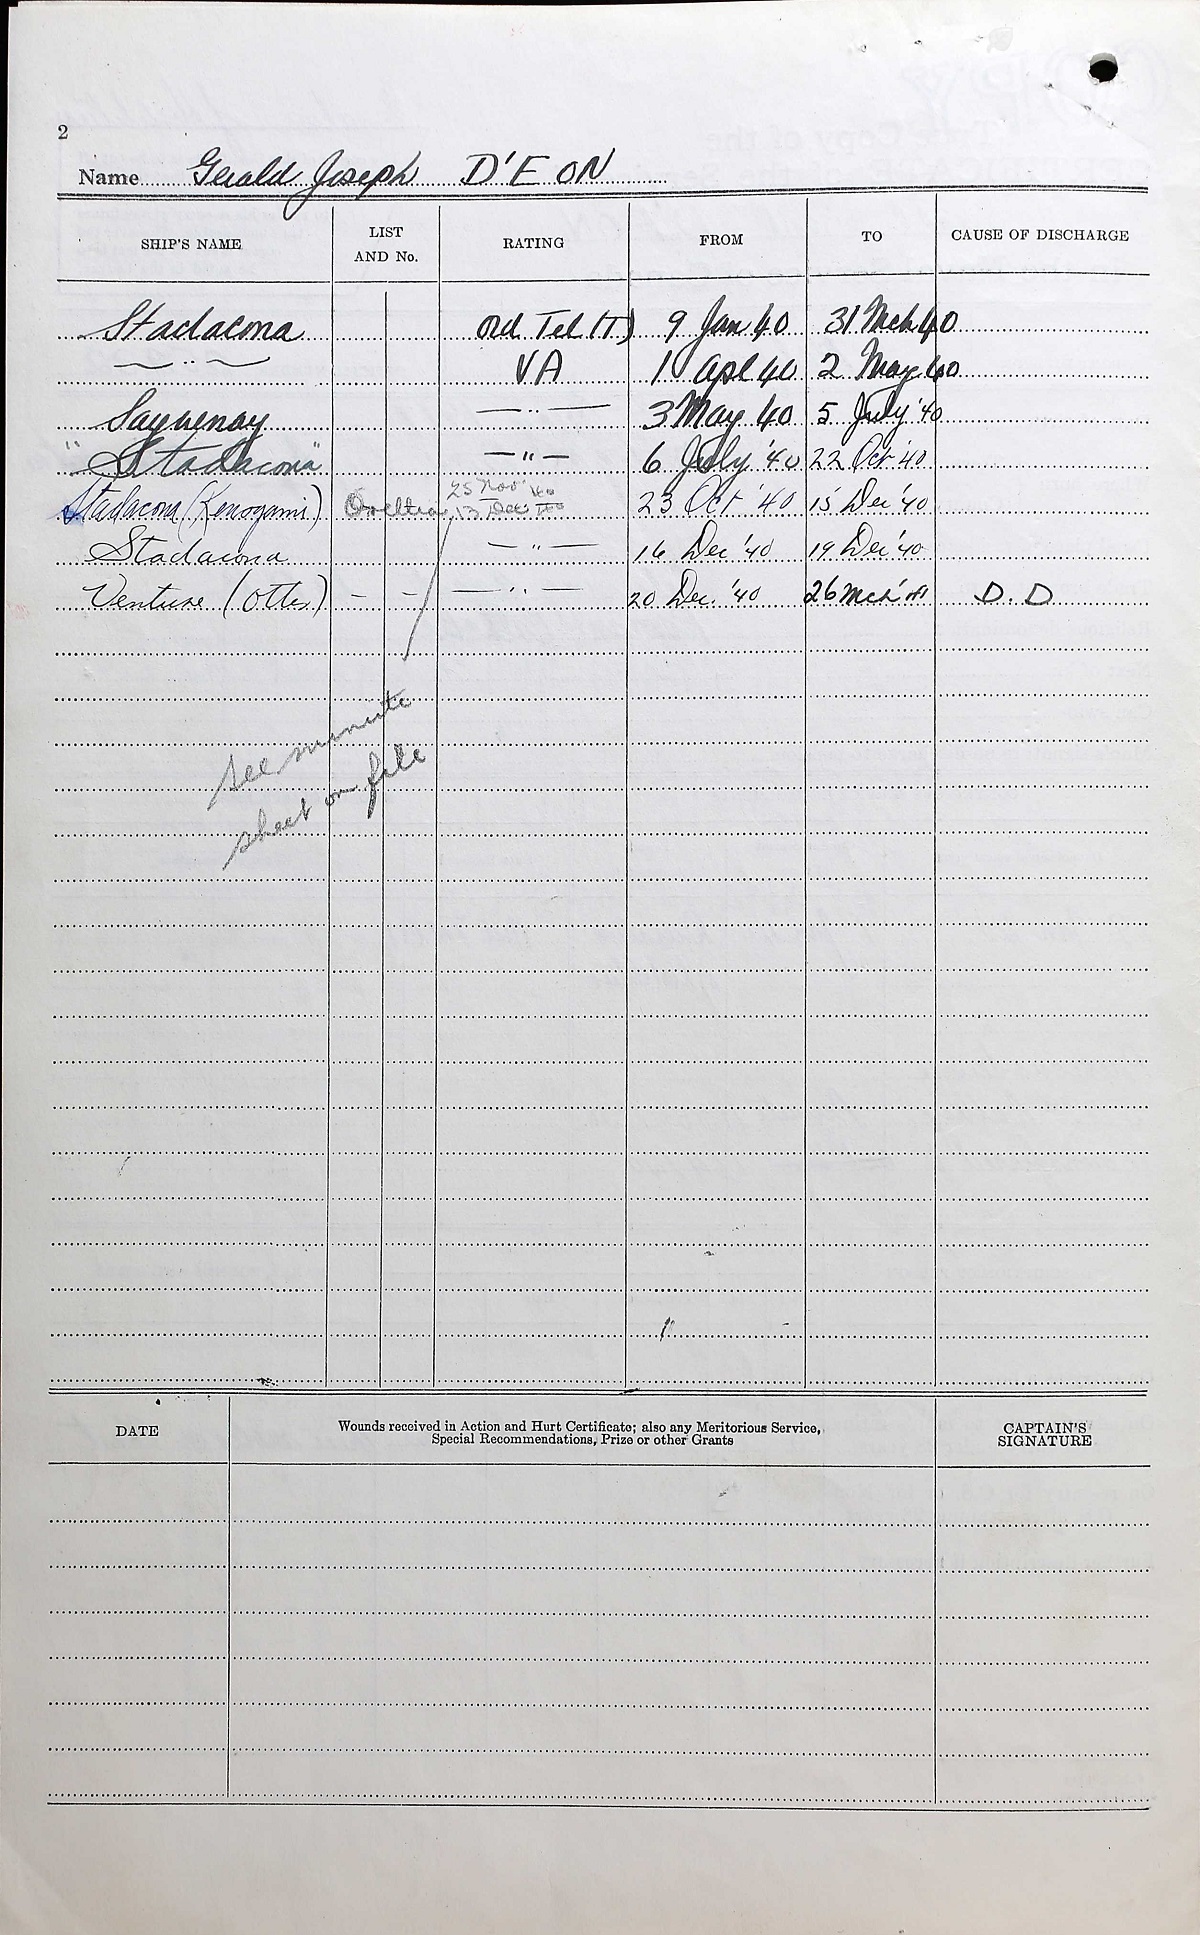 2
Name Gerald Joseph D'EON
SHIP'S NAME LIST AND No. RATING FROM TO CAUSE OF DISCHARGE
Stadacona Ord Tel (T) 9 Jan 40 31 Mch 40
— " — VA 1 Apl 40 2 May 40
Saguenay — " — 3 May 40 5 July '40
"Stadacona" — " — 6 July '40 22 Oct '40
25 Nov 40
Stadacona (Kenogami) 13 Dec 40 23 Oct '40 15 Dec '40
Stadacona — " — 16 Dec '40 19 Dec '40
Venture (Otter) — — — " — 20 Dec. '40 26 Mch '41 D.D
See minute
sheet on file
DATE Wounds received in Action and Hurt Certificate; also any Meritorious Service, CAPTAIN'S
Special Recommendations, Prize or other Grants SIGNATURE